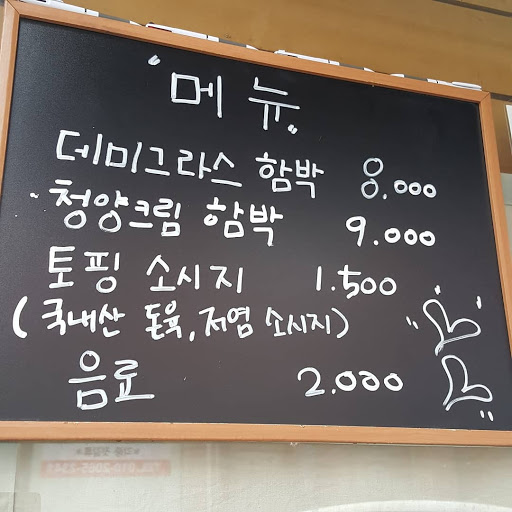 "메뉴"
데미그라스 함박 8.000
·청양크림 함박 9.000
토핑 소시지 1.500
(국내산 돈육, 저염 소시지)
음료 2.000
TEL.010-2065-2348